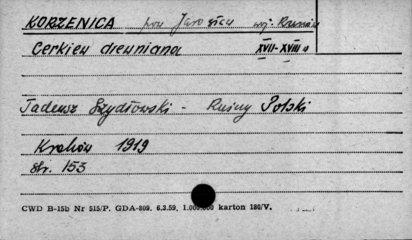 KORZENICA pow Jarosław woj. Rzeszów
Cerkiew drewniana XVII-XVIII w
Tadeusz Szydłowski - Ruiny Polski
Kraków 1919
str. 153
CWD B-15b Nr 515/P. GDA-809. 6.3.59. 1.000.000 karton 180/V.